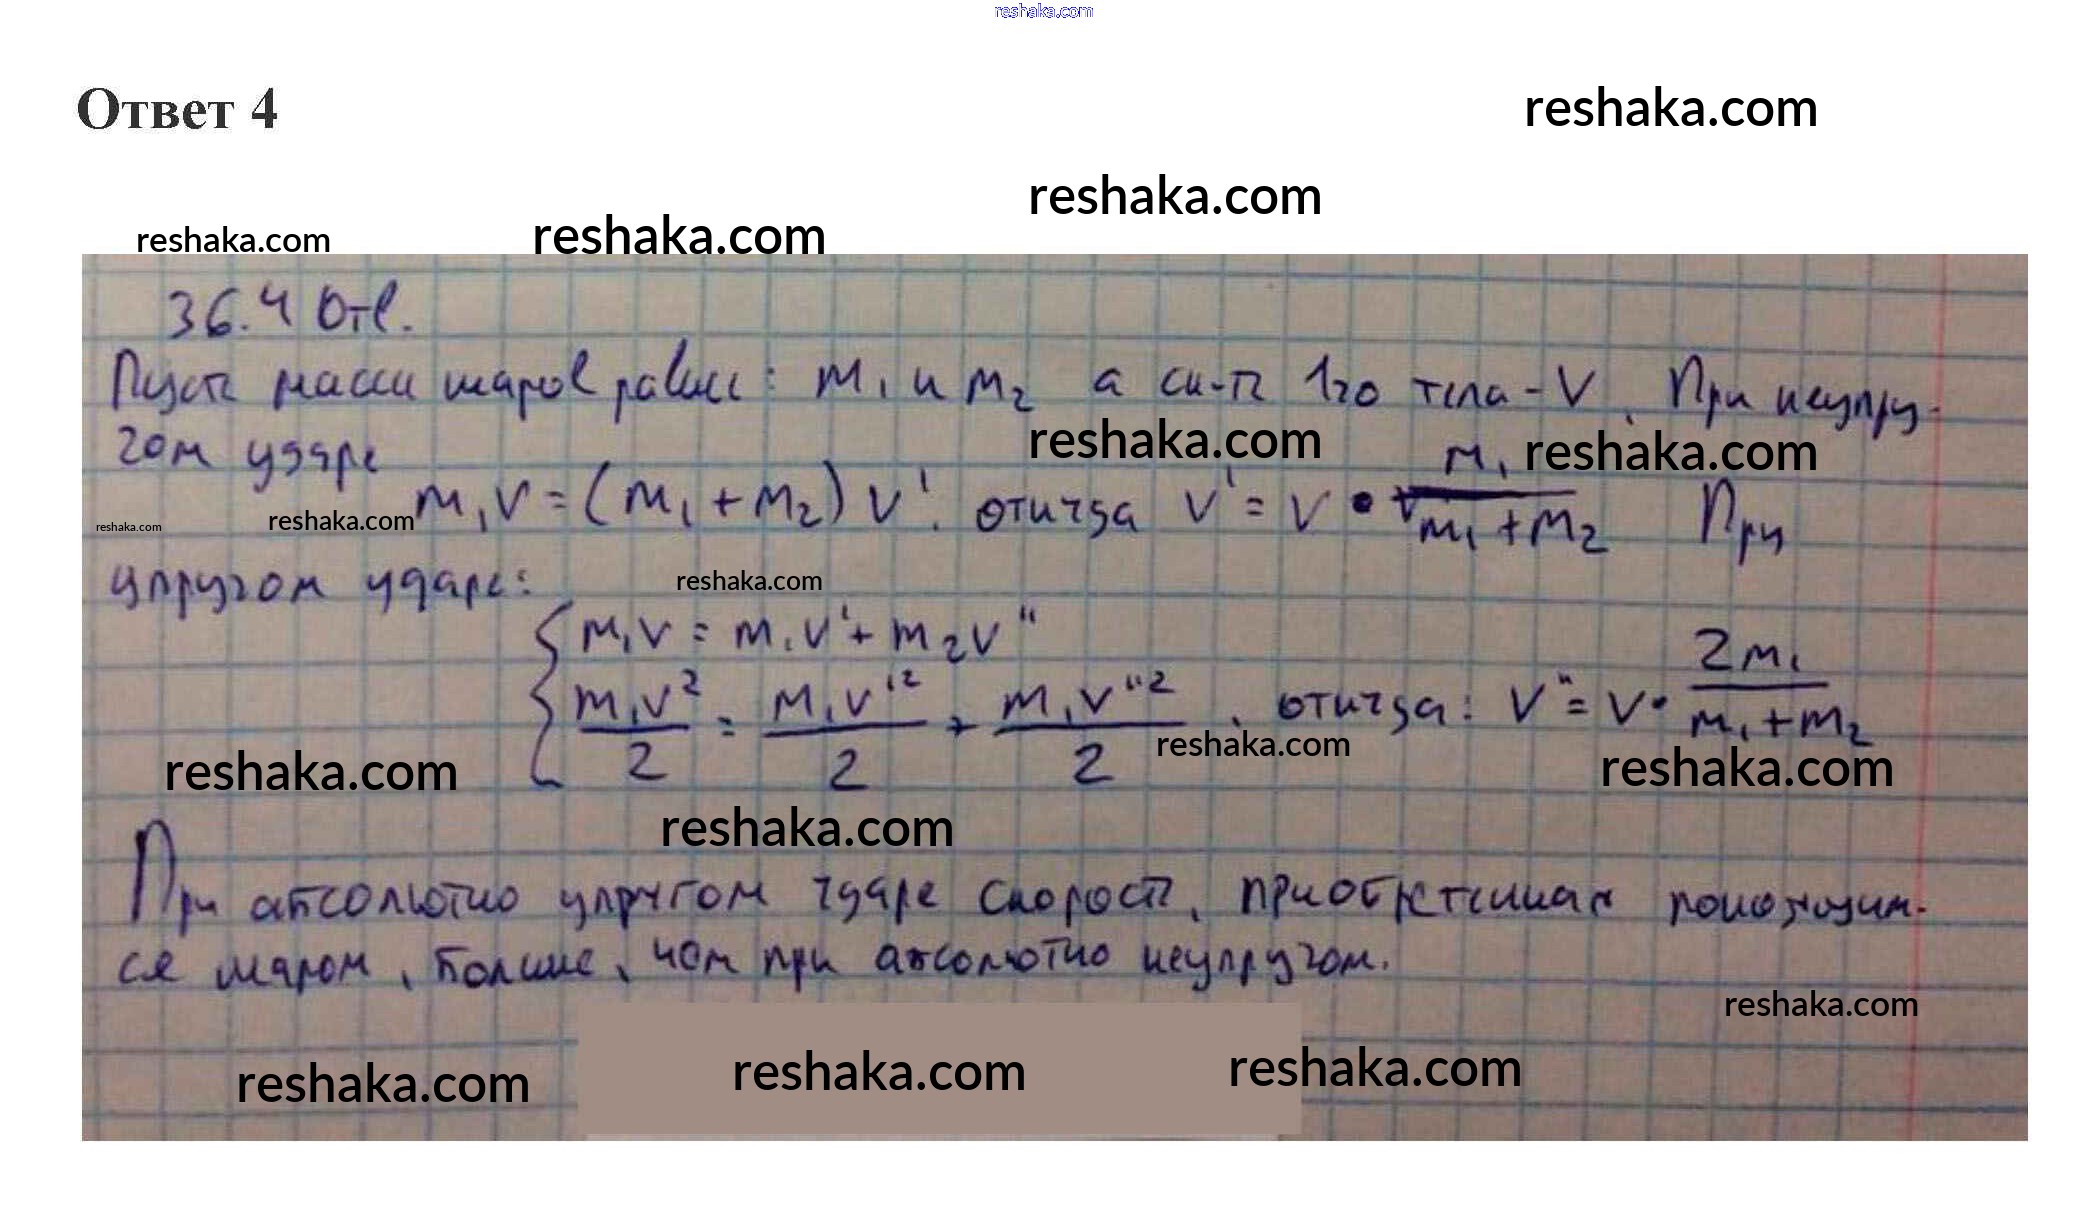 reshaka.com
Ответ 4
reshaka.com
reshaka.com
reshaka.com
reshaka.com
36.4 Отв.
Пусть массы шаров равны: m₁ и m₂ а ск-ть 1го тела - V. При неупру-
reshaka.com
reshaka.com
гом ударе
m₁V = (m₁ + m₂) V'. откуда V' = V • m₁/(m₁ + m₂) При
reshaka.com
reshaka.com
упругом ударе:
reshaka.com
{ m₁V = m₁V' + m₂V''
m₁V²/2 = m₁V'²/2 + m₁V''²/2, откуда: V'' = V • 2m₁/(m₁ + m₂)
reshaka.com
reshaka.com
reshaka.com
reshaka.com
При абсолютно упругом ударе скорость, приобретенная покоящим-
ся шаром, больше, чем при абсолютно неупругом.
reshaka.com
reshaka.com
reshaka.com
reshaka.com